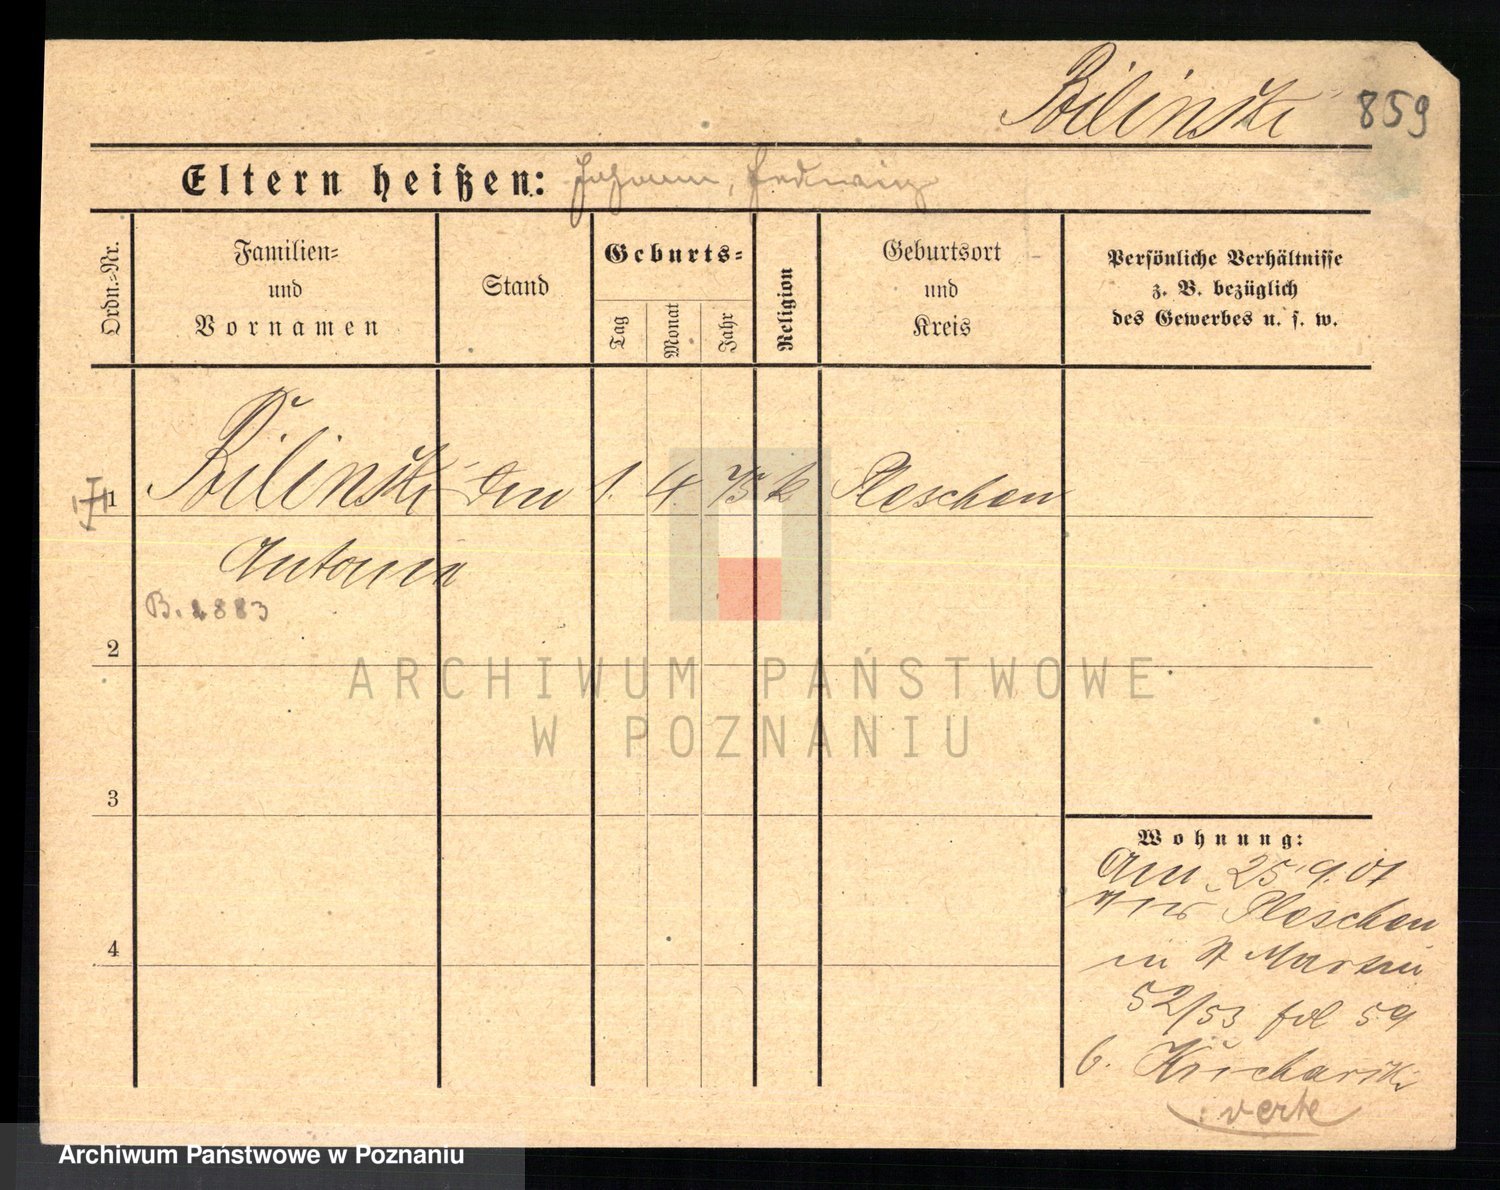 Bilinski 859
Eltern heißen: Johann, Hedwig
Ordn.=Nr.
Familien=
und
Vornamen
Stand
Geburts=
Tag
Monat
Jahr
Religion
Geburtsort
und
Kreis
Persönliche Verhältnisse
z. B. bezüglich
des Gewerbes u. s. w.
1 Bilinski 1. 4. 75 k Pleschen
Antonia
B. 1883
2
3
4
Wohnung:
Am 25.9.01
aus Pleschen
in St Martin
52/53 fol 59
b. Kucharski
verte
ARCHIWUM PAŃSTWOWE
W POZNANIU
Archiwum Państwowe w Poznaniu